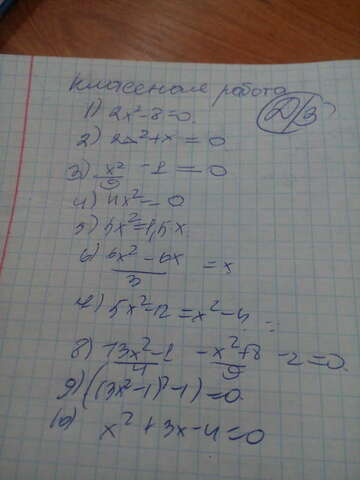 классная работа
Д/З
1) 2x²-8=0.
2) 2x²+x=0
3) x²/9 -1=0
4) 4x²=0
5) 3x²=1,5x.
6) (6x²-6x)/3 =x
7) 5x²-12=x²-4
8) (13x²-1)/4 -(x²+8)/9 -2=0.
9) ((3x²-1)²-1)=0.
10) x²+3x-4=0